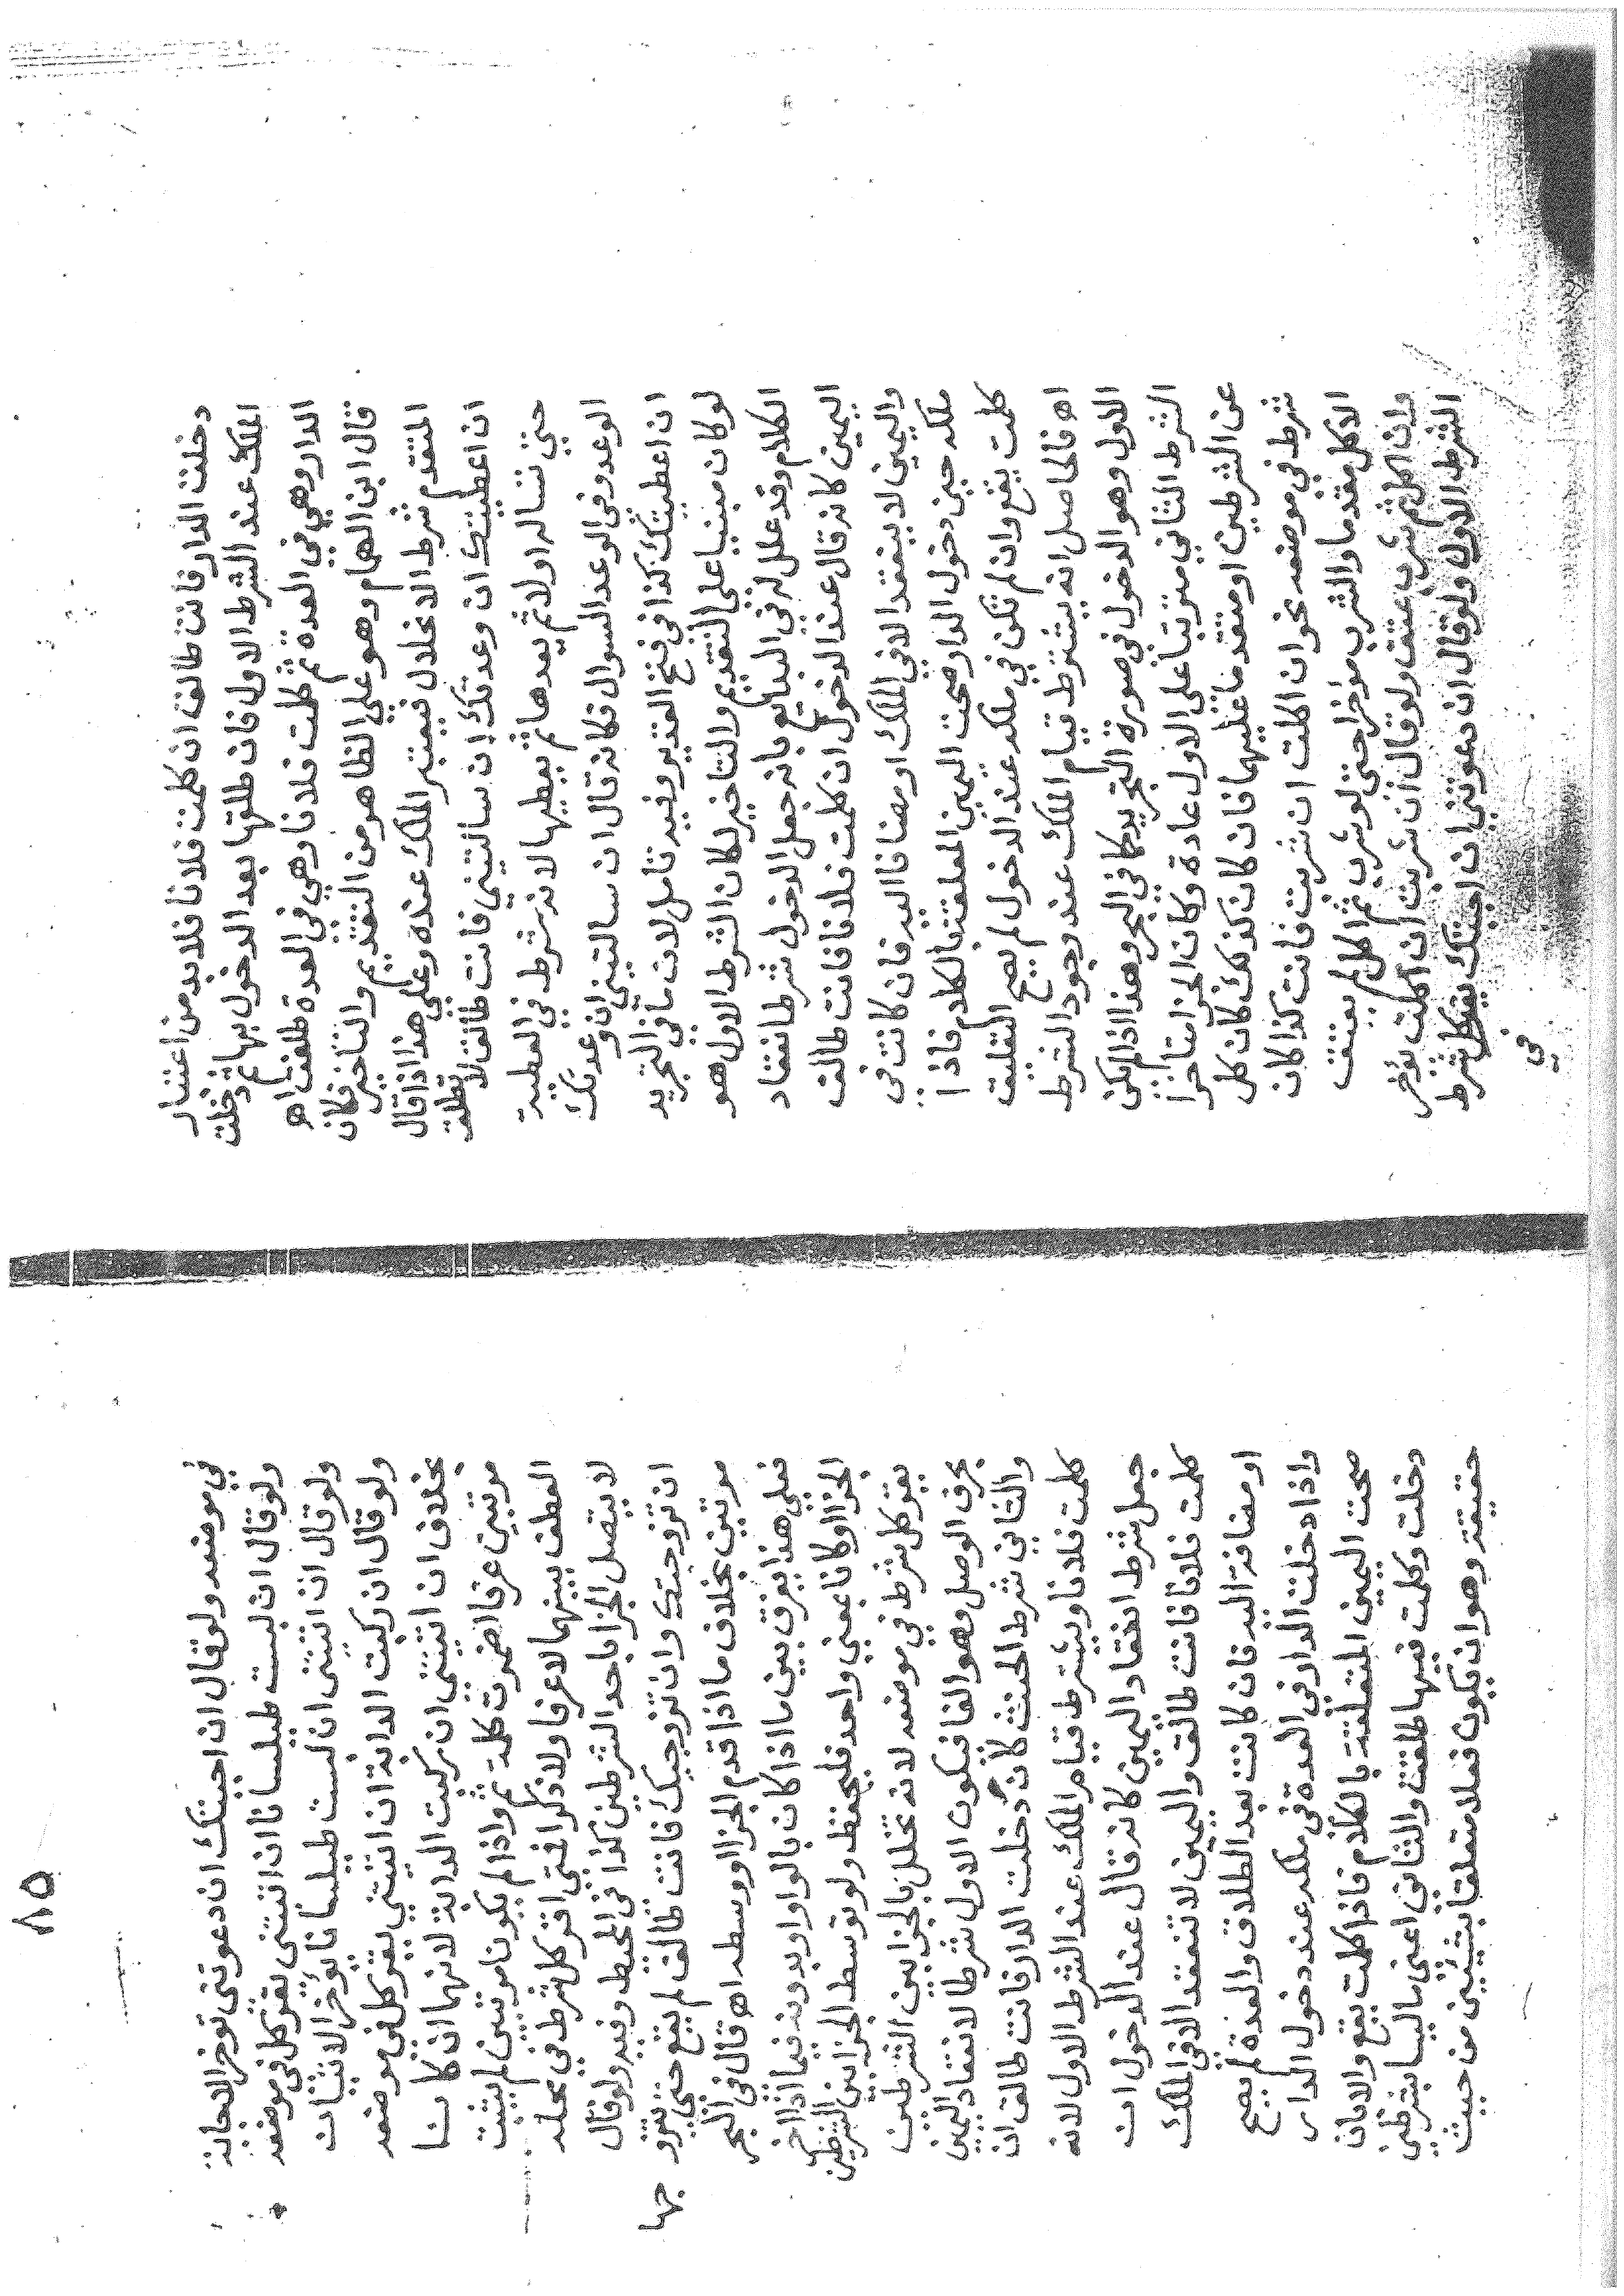 دخلت الدار فانت طالق ان كلمت فلانا فلا بد من اعتبار
الملك عند الشرط الاول فان طلقها بعد الدخول بها ثم دخلت
الدار وهي في العدة ثم كلمت فلانا وهي في العدة طلقت اه
قال ابن الهمام وهو علي الظاهر من التقديم والتاخير فكان
المتقدم شرط الانحلال فيعتبر الملك عنده وعلي هذا اذا قال
ان اعطيتك ان وعدتك ان سالتيني فانت طالق لا تطلق
حتي تساله اولا ثم يعدها ثم يعطيها لانه شرط في العطية
الوعد وفي الوعد السوال فكانه قال ان سالتيني ان وعدتك
ان اعطيتك كذا في فتح القدير وفيه تامل لان ما في التجريد
لو كان مبنيا علي التقديم والتاخير لكان الشرط الاول هو
الكلام وقد علل له في البدايع بانه جعل الدخول شرط انعقاد
اليمين كانه قال عند الدخول ان كلمت فلانا فانت طالق
واليمين لا ينعقد الا في الملك او مضافا اليه فان كانت في
ملكه حين دخول الدار صحت اليمين المعلقة بالكلام فاذا
كلمت يقع وان لم تكن في ملكه عند الدخول لم يصح التعليق
اه فالحاصل انه يشترط قيام الملك عند وجود الشرط
الاول وهو الدخول في صورة التجريد كما في البحر وهذا اذا لم يكن
الشرط الثاني مترتبا علي الاول عادة وكان الجزا متاخرا
عن الشرطين او متقدما عليهما فان كان كذلك كان كل
شرط في موضعه نحو ان اكلت ان شربت فانت كذا كان
الاكل مقدما والشرب مؤخرا حتي لو شرب ثم اكل لم يعتق
وان اكل ثم شرب عتق ولو قال ان شربت ان اكلت يؤخر
الشرط الاول ولو قال ان دعوتني ان اجبتك يقر كل شرط
في
٨٥
في موضعه ولو قال ان اجبتك ان دعوتني تؤخر الاجابة
ولو قال ان لبست طيلسانا ان اتيتني يقر كل في موضعه
ولو قال ان اتيتني ان لبست طيلسانا يؤخر الاتيان
ولو قال ان ركبت الدابة ان اتيتني يقر كل في موضعه
بخلاف ان اتيتني ان ركبت الدابة لانهما ان كانا
مرتبين عرفا اضمرت كلمة ثم واذا لم يكونا مرتبين لم يثبت
العطف بينهما لا عرفا ولا ذكرا فتي اقر كل شرط في محله
لا يتصل الجزا باحد الشرطين كذا في المحيط وفيه ولو قال
ان تزوجتك وان تزوجتك فانت طالق لم يقع حتي يتزوجها
مرتين بخلاف ما اذا قدم الجزا او وسطه اه قال في البحر
فعلي هذا يفرق بين ما اذا كان بالواو او بدونه فيما اذا اخر
الجزا او كانا بمعني واحد فليحفظ ولو توسط الجزا بين الشرطين
يقر كل شرط في موضعه لانه تخلل بالجزا بين الشرطين
بحرف الوصل وهو الفا فيكون الاول شرطا لانعقاد اليمين
والثاني شرط الحنث كان دخلت الدار فانت طالق ان
كلمت فلانا ويشترط قيام الملك عند الشرط الاول لانه
جعل شرط انعقاد اليمين كانه قال عند الدخول ان
كلمت فلانا فانت طالق واليمين لا تنعقد الا في الملك
او مضافة اليه فان كانت بعد الطلاق والعدة لم يصح
واذا دخلت الدار في العدة في ملكه عند دخول الدار
صحت اليمين المتعلقة بالكلام فاذا كلمت يقع والا بان
دخلت وكلمت فيها طلقت والثاني اعني ما ليسا بشرطين
حقيقة وهو ان يكون فعلا متعلقا بشيئين من حيث